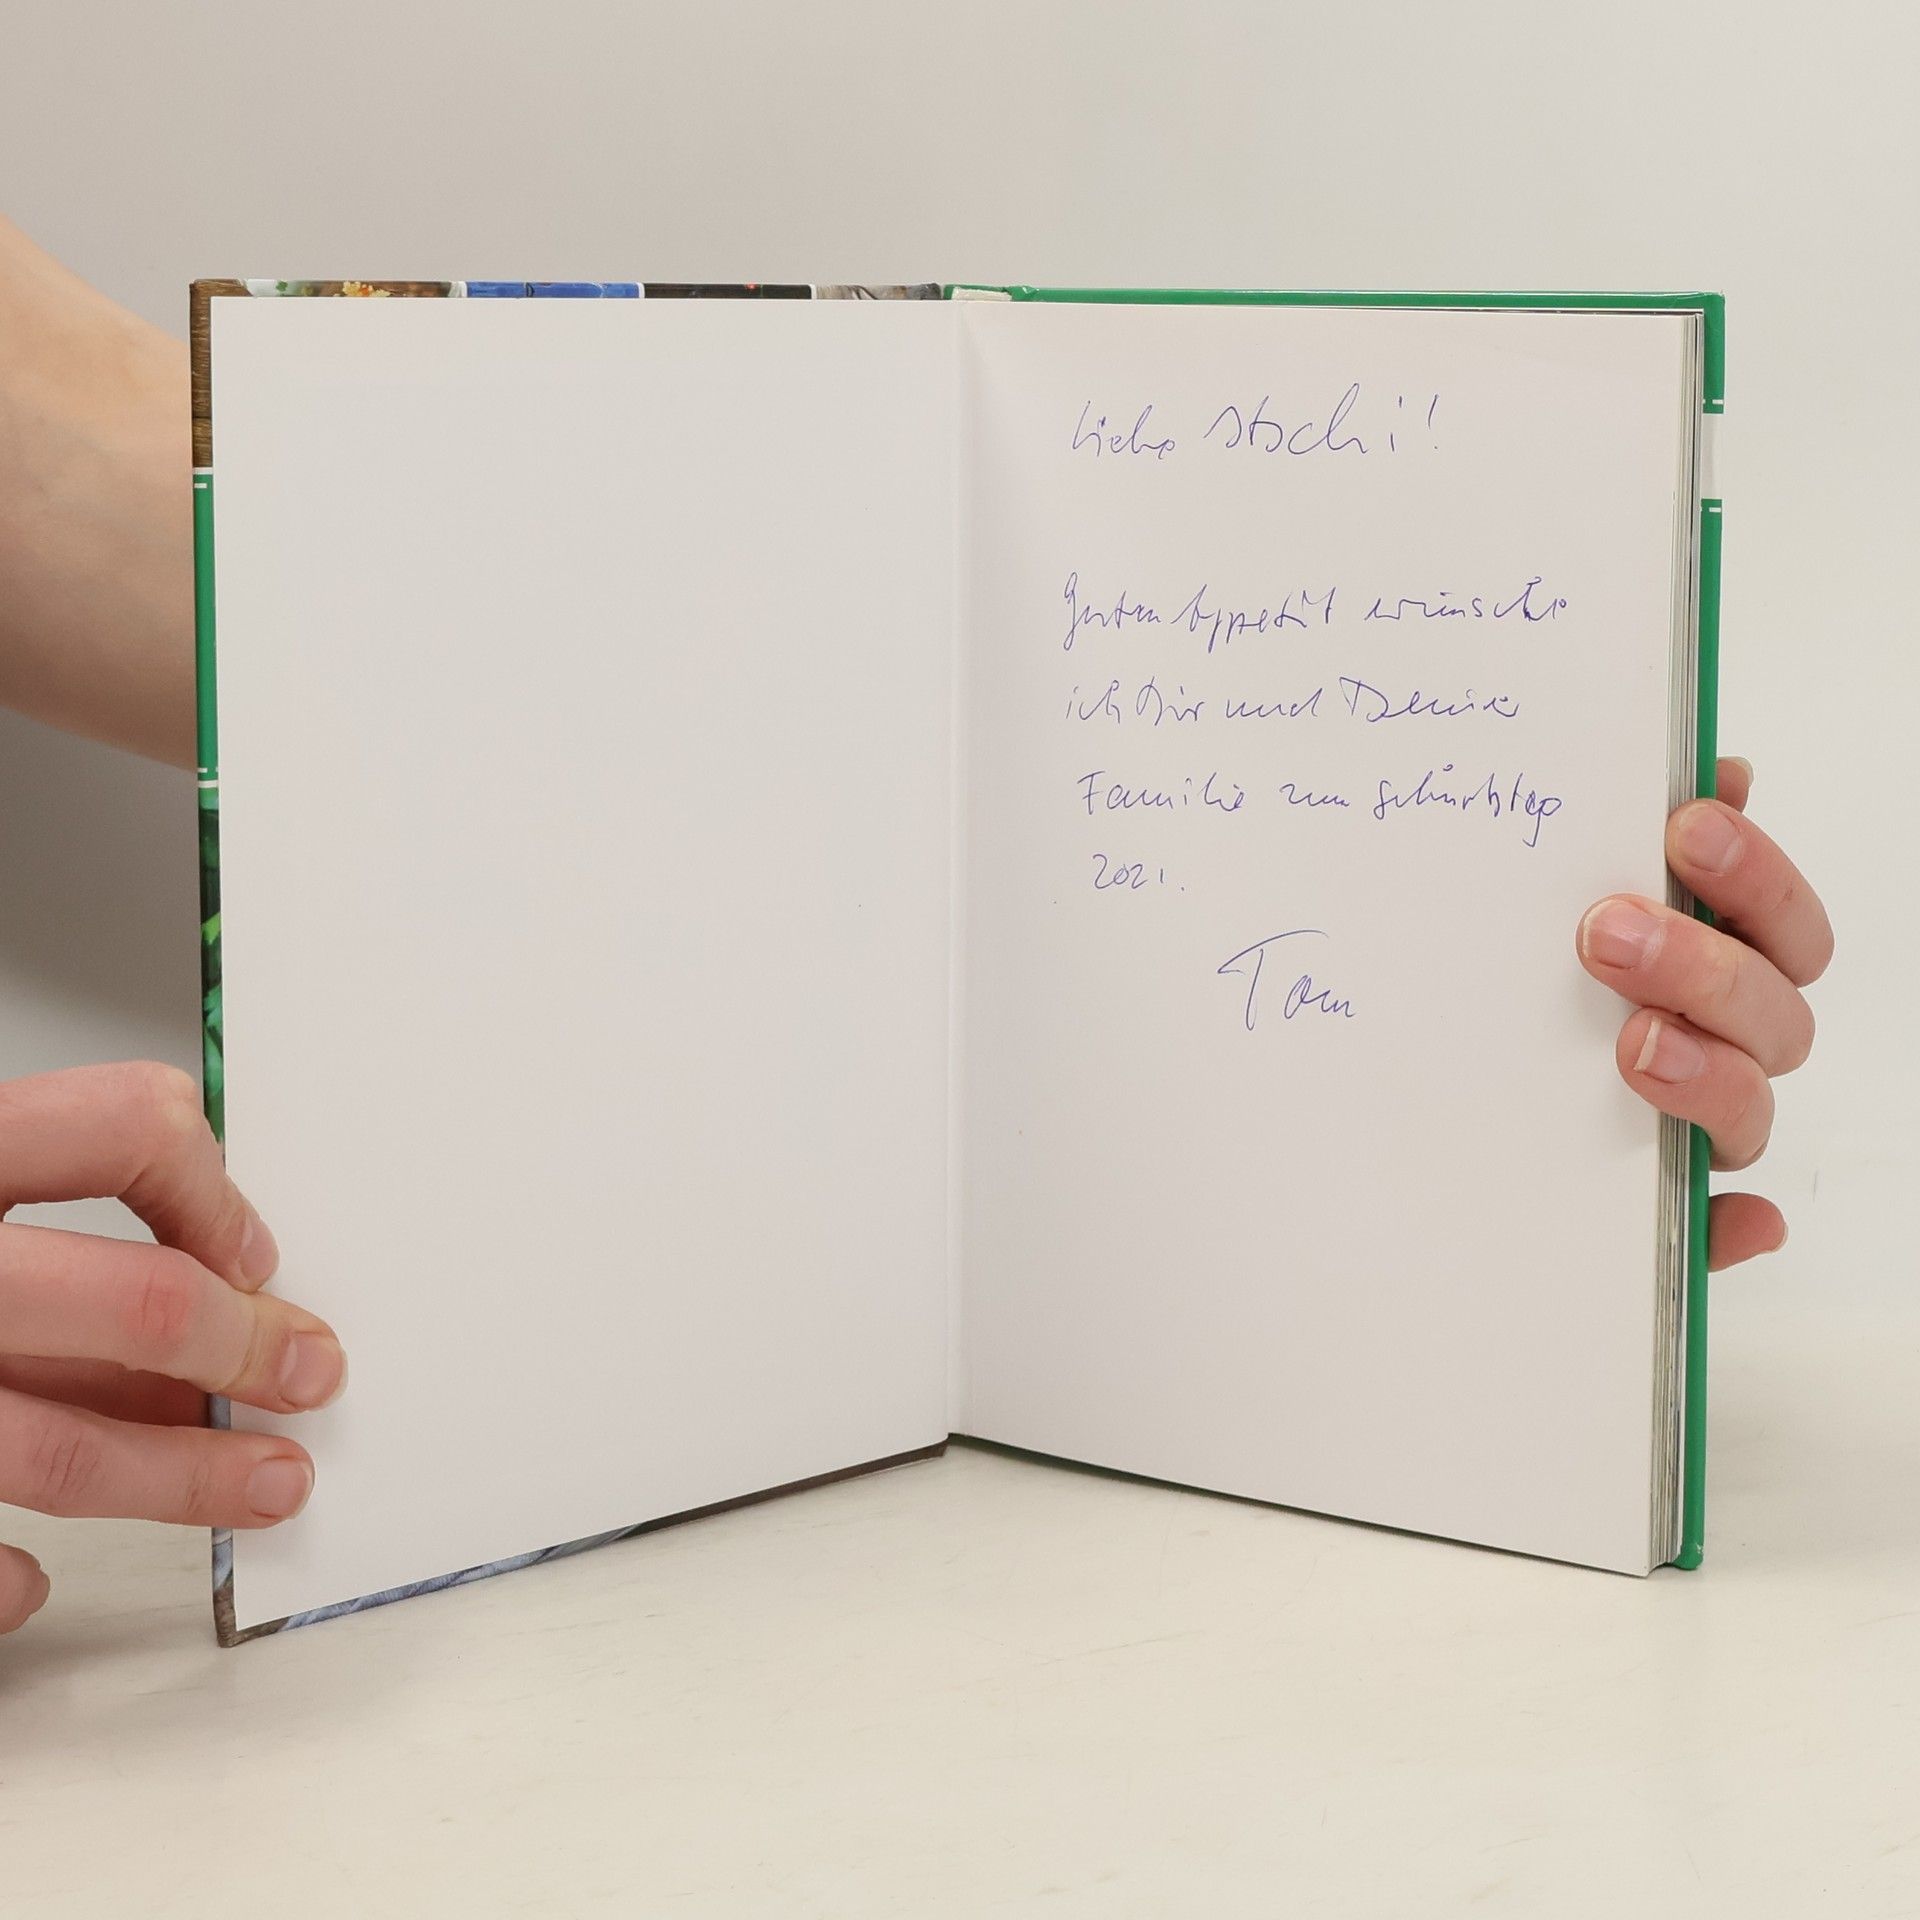 Liebe Stschi!
Guten Appetit wünsche
ich Dir und Deiner
Familie zum Geburtstag
2021.
Tom